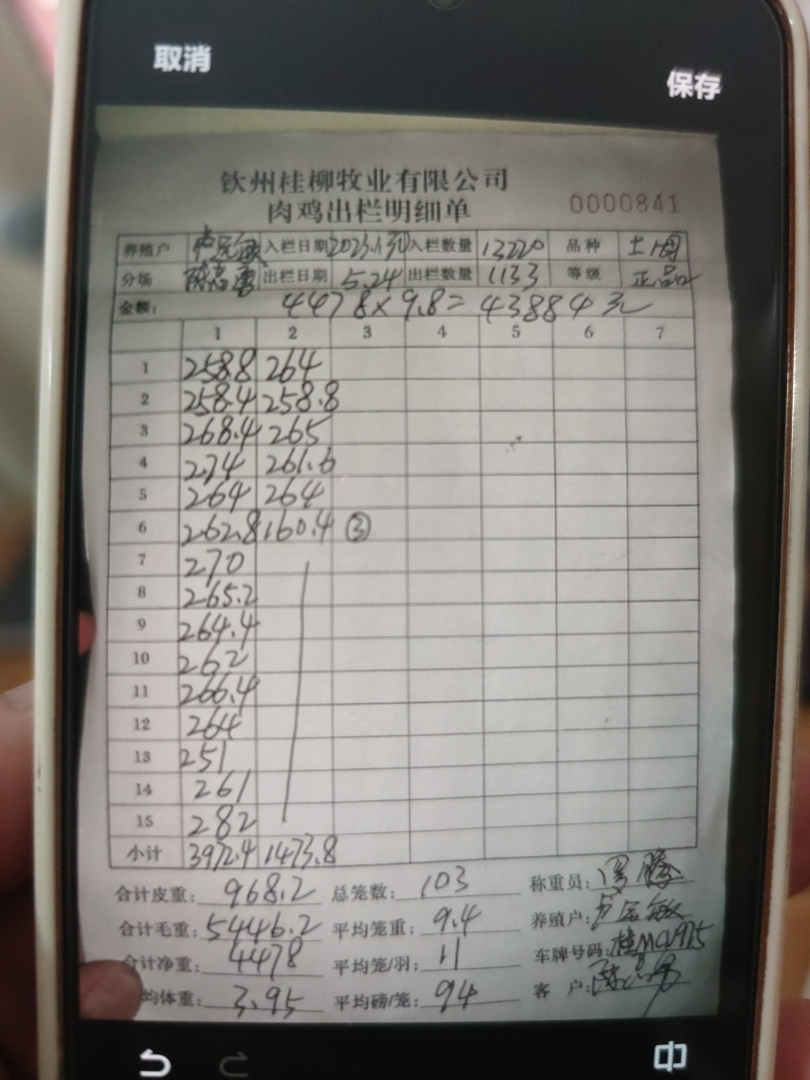 取消
保存
钦州桂柳牧业有限公司
肉鸡出栏明细单 0000841
养殖户 入栏日期 入栏数量 13220 品种
分场 出栏日期 5.24 出栏数量 1133 等级 正品
金额: 4478×9.8=43884元
1 2 3 4 5 6 7
1 258.8 264
2 258.4 258.8
3 268.4 265
4 274 261.6
5 264 264
6 262.8 160.4 ③
7 270
8 265.2
9 264.4
10 262
11 266.4
12 264
13 251
14 261
15 282
小计 3972.4 1473.8
合计皮重: 968.2 总笼数: 103 称重员:
合计毛重: 5446.2 平均笼重: 9.4 养殖户:
合计净重: 4478 平均笼/羽: 11 车牌号码:
均体重: 3.95 平均磅/笼: 94 客 户: